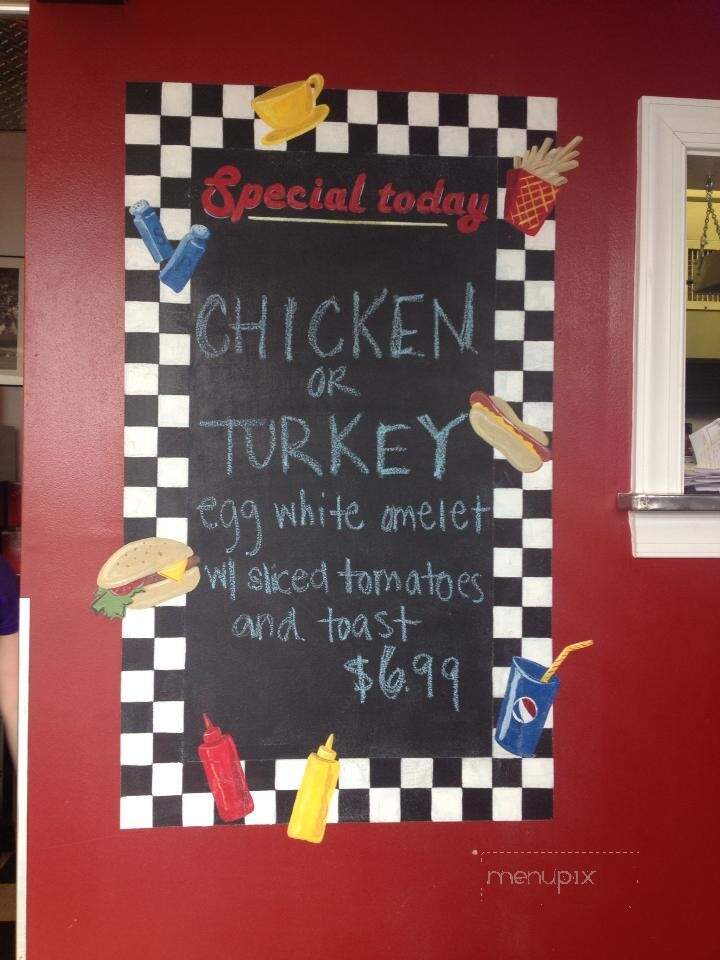 Special today
CHICKEN
OR
TURKEY
egg white omelet
w/ sliced tomatoes
and toast
$6.99
menupix